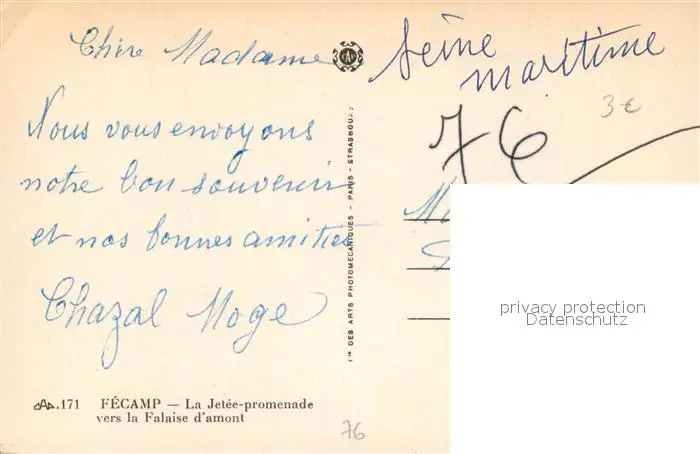 Chère Madame
Nous vous envoyons
notre bon souvenir
et nos bonnes amitiés
Chazal Moge
CAP.171 FÉCAMP — La Jetée-promenade
vers la Falaise d'amont
76
CIE DES ARTS PHOTOMÉCANIQUES - PARIS - STRASBOURG
Seine
maritime
3 €
76
privacy protection
Datenschutz